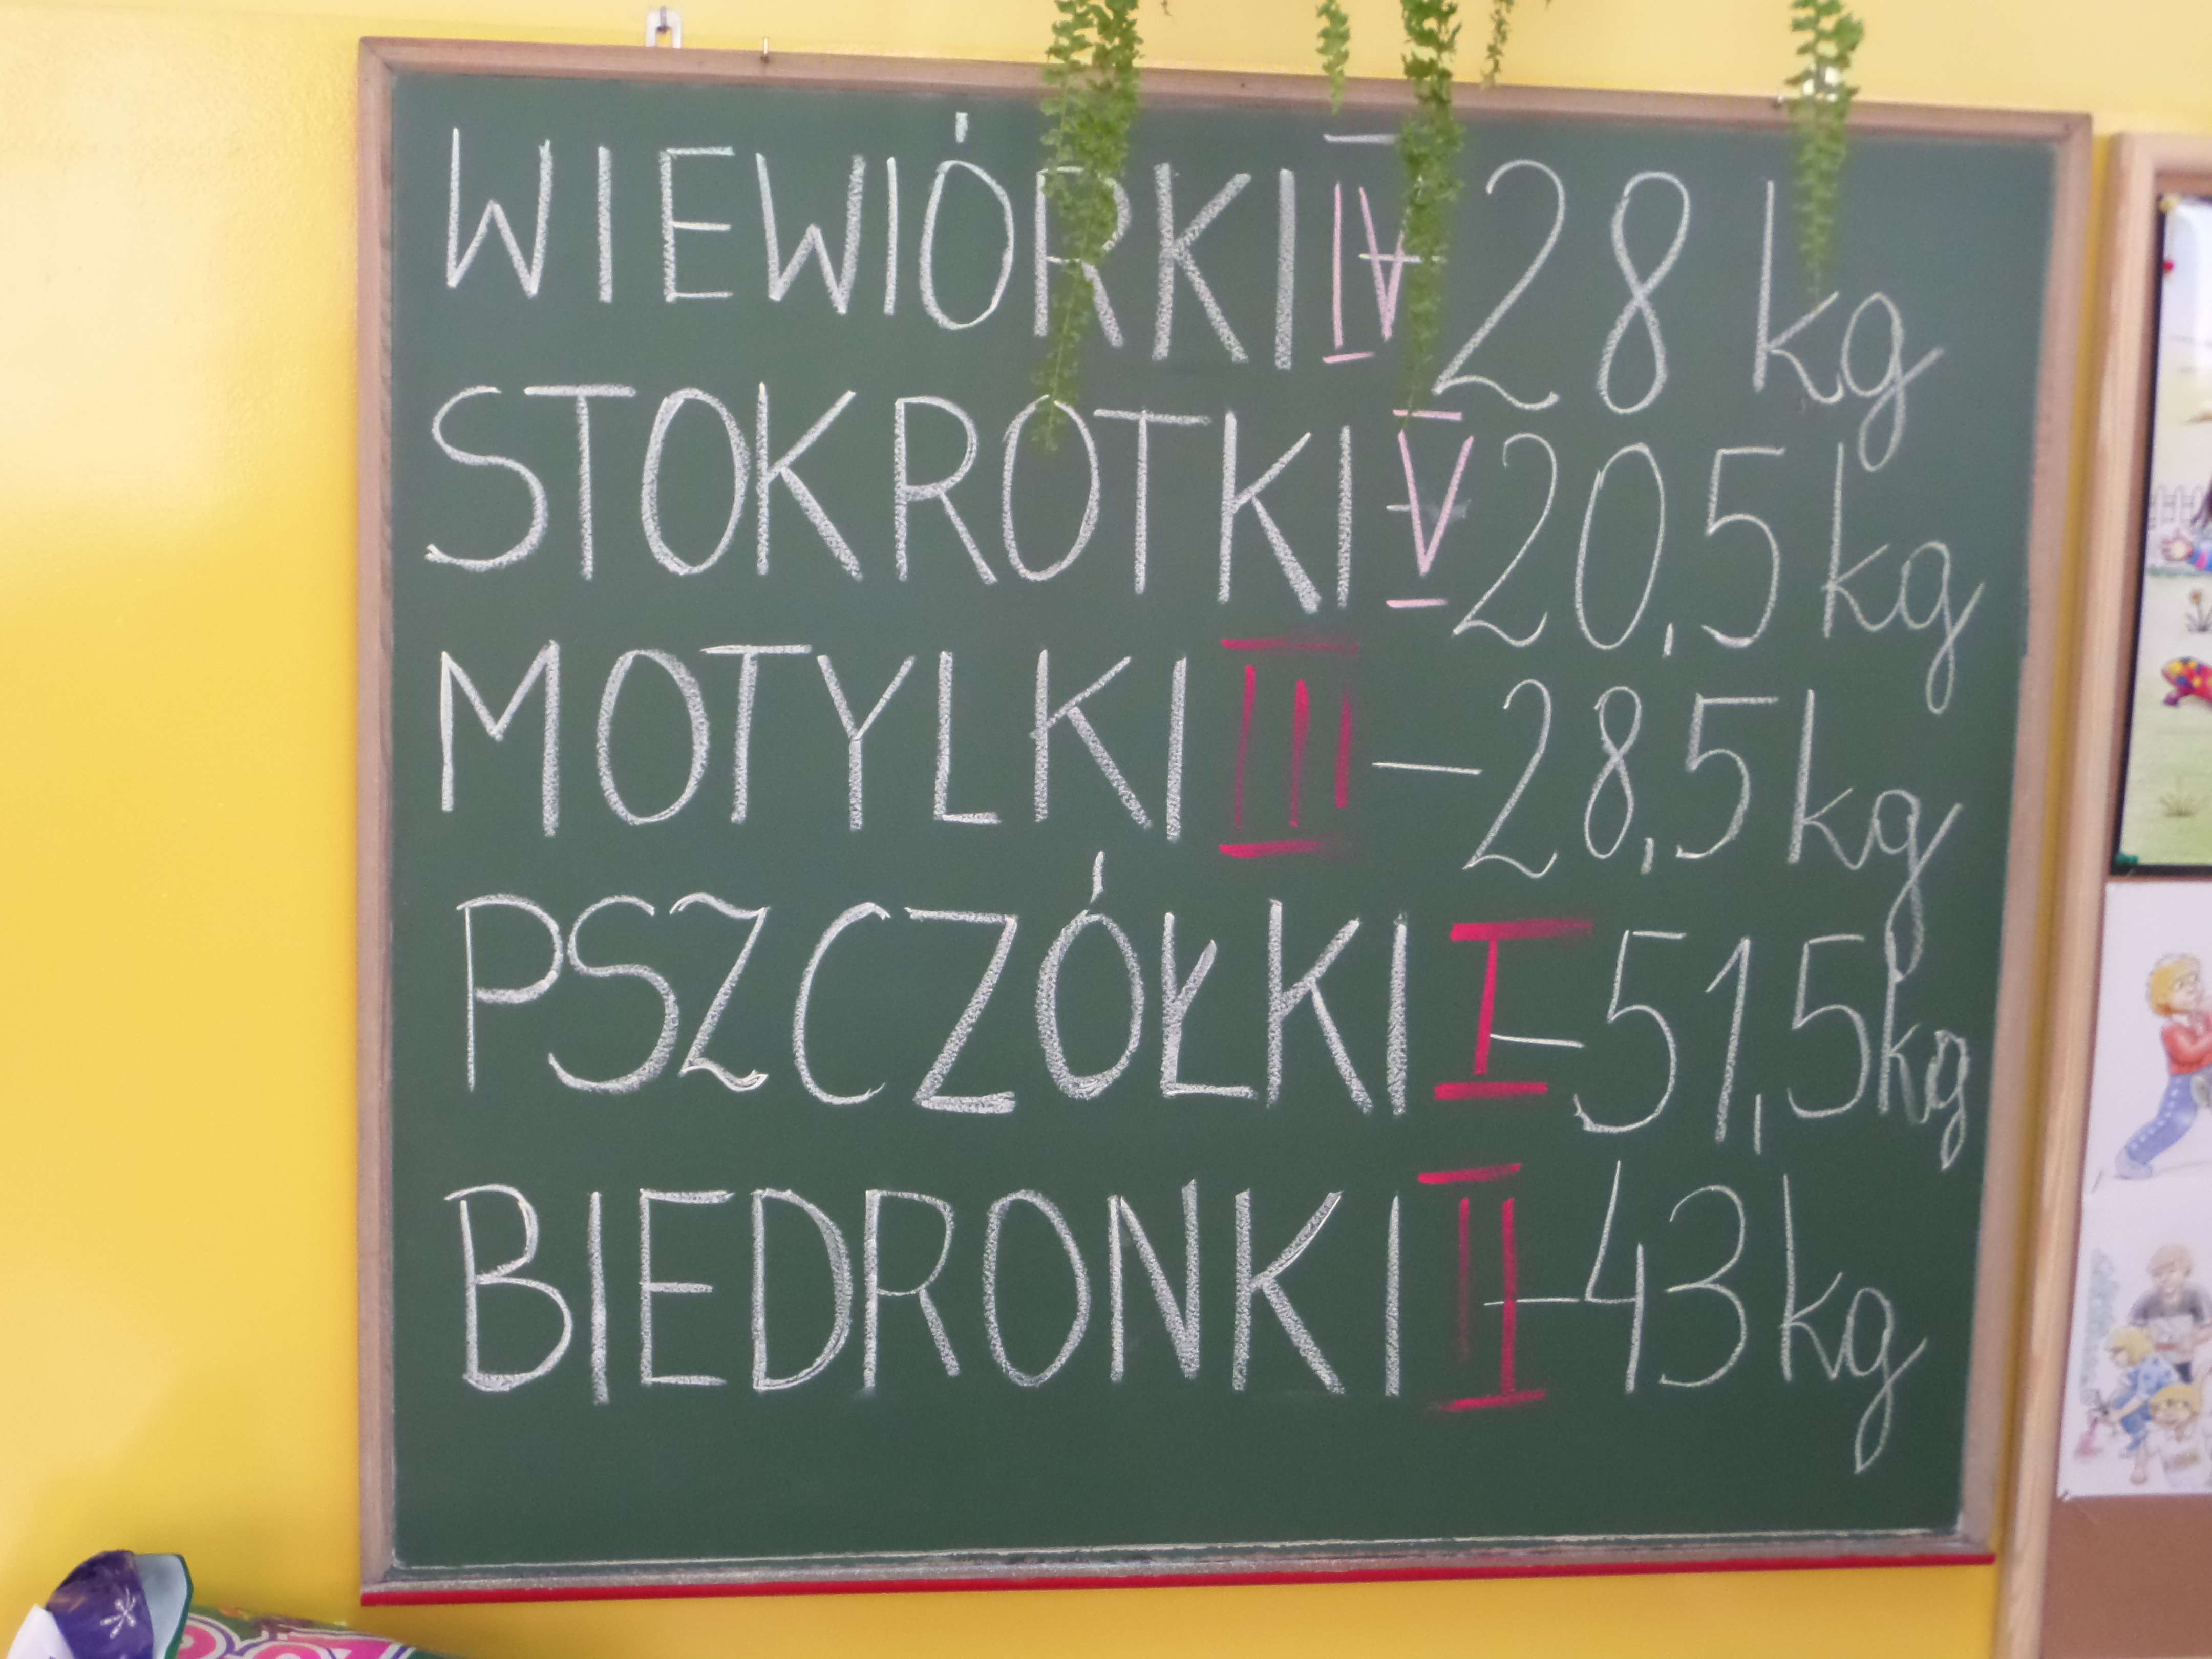 WIEWIÓRKI IV - 28 kg
STOKROTKI V - 20,5 kg
MOTYLKI III - 28,5 kg
PSZCZÓŁKI I - 51,5 kg
BIEDRONKI II - 43 kg